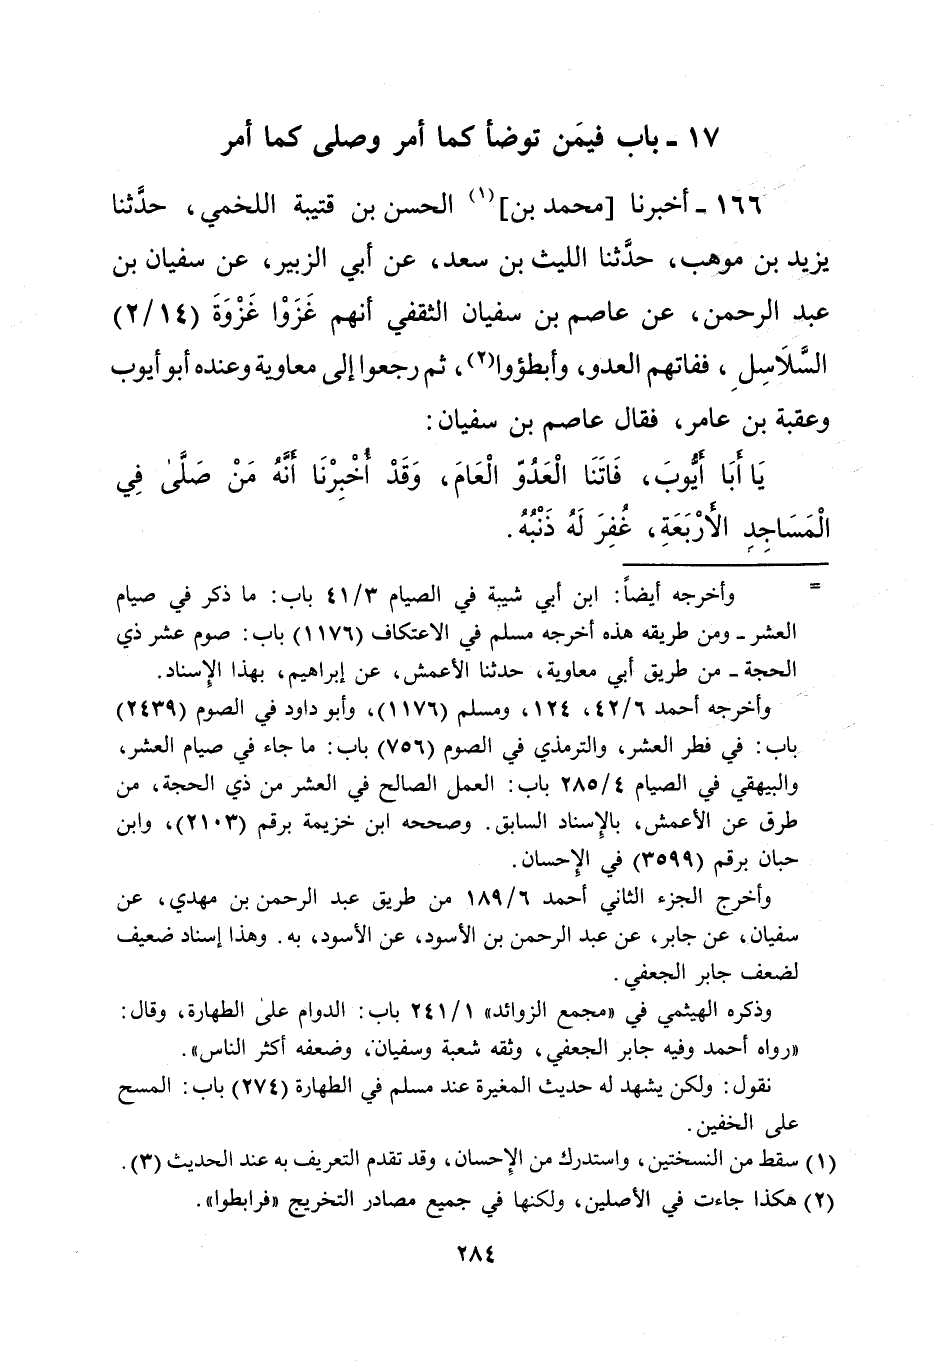 ١٧ - باب فيمَن توضأ كما أمر وصلى كما أمر
١٦٦ - أخبرنا [محمد بن]⁽¹⁾ الحسن بن قتيبة اللخمي، حدَّثنا
يزيد بن موهب، حدَّثنا الليث بن سعد، عن أبي الزبير، عن سفيان بن
عبد الرحمن، عن عاصم بن سفيان الثقفي أنهم غَزَوْا غَزْوَةَ (٢/١٤)
السَّلَاسِلِ، ففاتهم العدو، وأبطؤوا⁽²⁾، ثم رجعوا إلى معاوية وعنده أبو أيوب
وعقبة بن عامر، فقال عاصم بن سفيان:
يَا أَبَا أَيُّوبَ، فَاتَنَا الْعَدُوّ الْعَامَ، وَقَدْ أُخْبِرْنَا أَنَّهُ مَنْ صَلَّىٰ فِي
الْمَسَاجِدِ الأَرْبَعَةِ، غُفِرَ لَهُ ذَنْبُهُ.
= وأخرجه أيضاً: ابن أبي شيبة في الصيام ٤١/٣ باب: ما ذكر في صيام
العشر - ومن طريقه هذه أخرجه مسلم في الاعتكاف (١١٧٦) باب: صوم عشر ذي
الحجة - من طريق أبي معاوية، حدثنا الأعمش، عن إبراهيم، بهذا الإسناد.
وأخرجه أحمد ٤٢/٦، ١٢٤، ومسلم (١١٧٦)، وأبو داود في الصوم (٢٤٣٩)
باب: في فطر العشر، والترمذي في الصوم (٧٥٦) باب: ما جاء في صيام العشر،
والبيهقي في الصيام ٢٨٥/٤ باب: العمل الصالح في العشر من ذي الحجة، من
طرق عن الأعمش، بالإسناد السابق. وصححه ابن خزيمة برقم (٢١٠٣)، وابن
حبان برقم (٣٥٩٩) في الإحسان.
وأخرج الجزء الثاني أحمد ١٨٩/٦ من طريق عبد الرحمن بن مهدي، عن
سفيان، عن جابر، عن عبد الرحمن بن الأسود، عن الأسود، به. وهذا إسناد ضعيف
لضعف جابر الجعفي.
وذكره الهيثمي في «مجمع الزوائد» ٢٤١/١ باب: الدوام علىٰ الطهارة، وقال:
«رواه أحمد وفيه جابر الجعفي، وثقه شعبة وسفيان، وضعفه أكثر الناس».
نقول: ولكن يشهد له حديث المغيرة عند مسلم في الطهارة (٢٧٤) باب: المسح
على الخفين.
(١) سقط من النسختين، واستدرك من الإحسان، وقد تقدم التعريف به عند الحديث (٣).
(٢) هكذا جاءت في الأصلين، ولكنها في جميع مصادر التخريج «فرابطوا».
٢٨٤